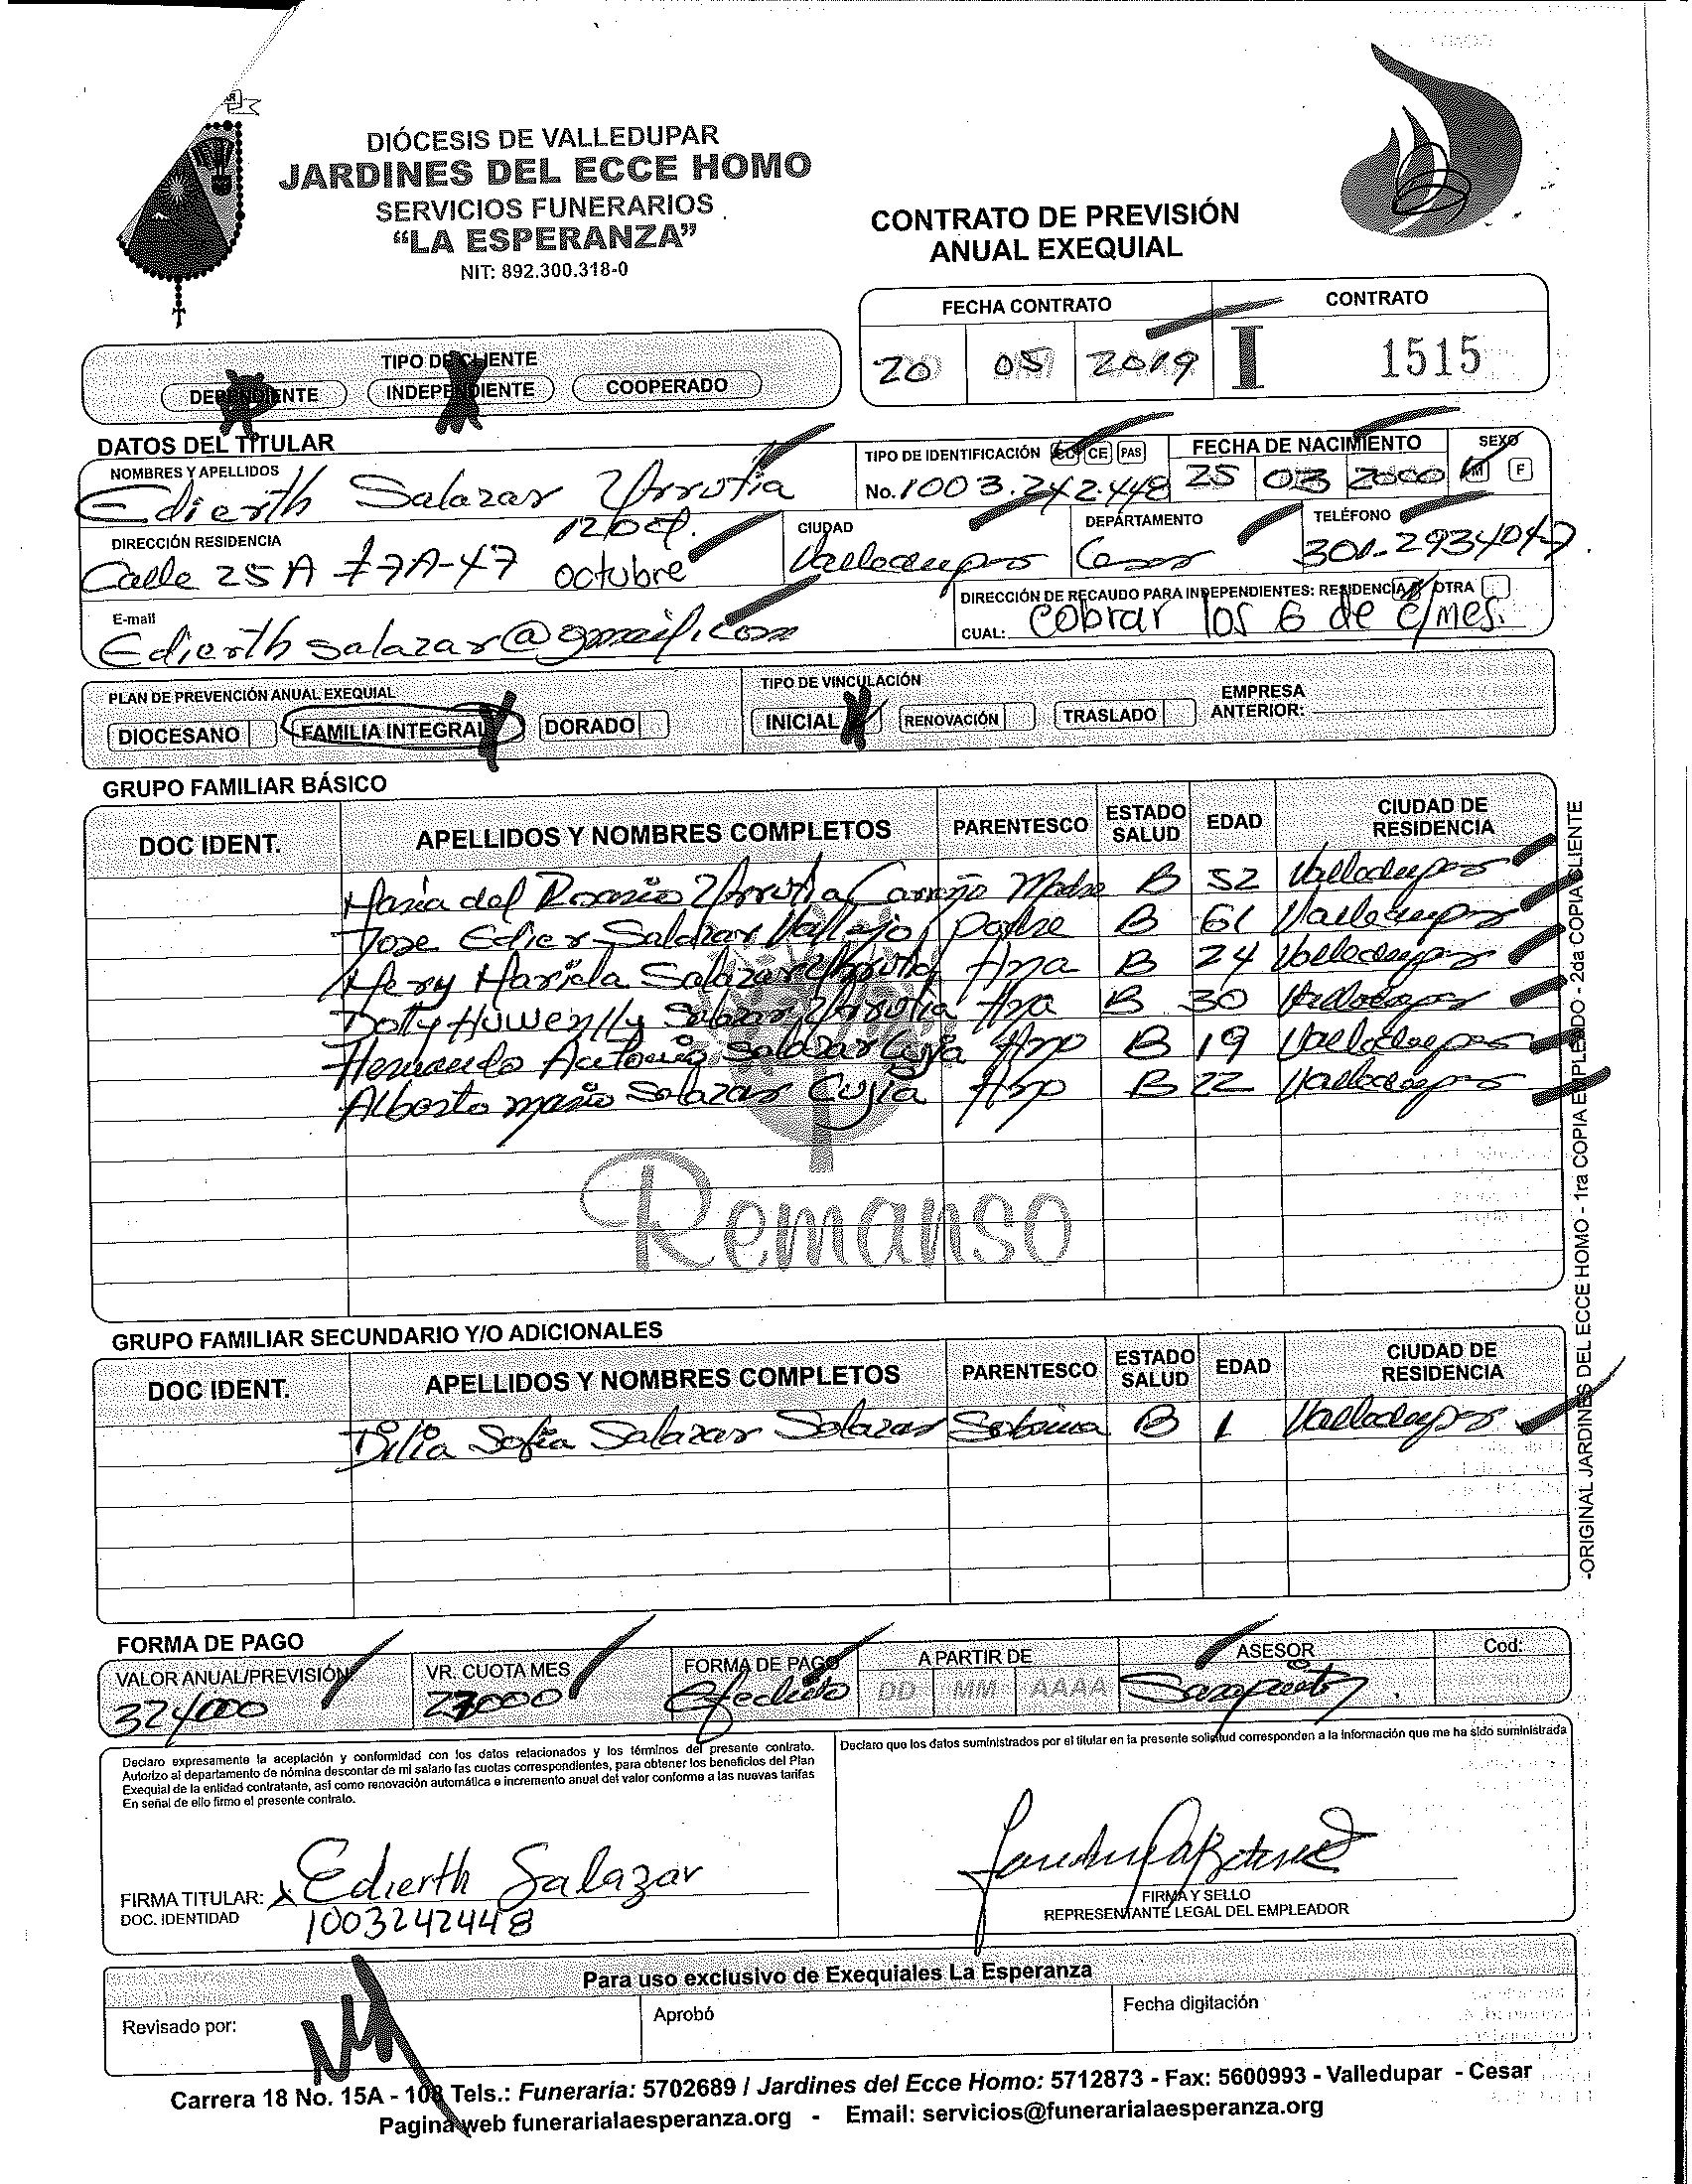 DIÓCESIS DE VALLEDUPAR
JARDINES DEL ECCE HOMO
SERVICIOS FUNERARIOS
“LA ESPERANZA”
NIT: 892.300.318-0
CONTRATO DE PREVISIÓN
ANUAL EXEQUIAL
FECHA CONTRATO CONTRATO
20 05 2019 I 1515
TIPO DE CLIENTE
DEPENDIENTE INDEPENDIENTE COOPERADO
DATOS DEL TITULAR
NOMBRES Y APELLIDOS
Edierth Salazar Urrutia
TIPO DE IDENTIFICACIÓN CC CE PAS
No. 1003.242.448
FECHA DE NACIMIENTO
25 03 2000
SEXO
M F
DIRECCIÓN RESIDENCIA
Calle 25A #7A-47 12 de octubre
CIUDAD
Valledupar
DEPARTAMENTO
Cesar
TELÉFONO
301-2934047
E-mail
Edierthsalazar@gmail.com
DIRECCIÓN DE RECAUDO PARA INDEPENDIENTES: RESIDENCIA OTRA
CUAL: cobrar los 6 de c/mes.
PLAN DE PREVENCIÓN ANUAL EXEQUIAL
DIOCESANO FAMILIA INTEGRAL DORADO
TIPO DE VINCULACIÓN
INICIAL RENOVACIÓN TRASLADO
EMPRESA
ANTERIOR:
GRUPO FAMILIAR BÁSICO
DOC IDENT. APELLIDOS Y NOMBRES COMPLETOS PARENTESCO ESTADO SALUD EDAD CIUDAD DE RESIDENCIA
Maria del Rosario Urrutia Carreño Madre B 52 Valledupar
Jose Edier Salazar Vallejo padre B 61 Valledupar
Mery Mariela Salazar Urrutia Hna B 24 Valledupar
Doty Huwenlly Salazar Urrutia Hna B 30 Valledupar
Hernando Antonio Salazar Cujia Hno B 19 Valledupar
Alberto mario Salazar Cujia Hno B 22 Valledupar
Remanso
GRUPO FAMILIAR SECUNDARIO Y/O ADICIONALES
DOC IDENT. APELLIDOS Y NOMBRES COMPLETOS PARENTESCO ESTADO SALUD EDAD CIUDAD DE RESIDENCIA
Dilia Sofia Salazar Salazar Sobrina B 1 Valledupar
-ORIGINAL JARDINES DEL ECCE HOMO - 1ra COPIA EMPLEADO - 2da COPIA CLIENTE
FORMA DE PAGO
VALOR ANUAL/PREVISIÓN
324000
VR. CUOTA MES
27000
FORMA DE PAGO
Efectivo
A PARTIR DE
DD MM AAAA
ASESOR
Cod:
Declaro expresamente la aceptación y conformidad con los datos relacionados y los términos del presente contrato.
Autorizo al departamento de nómina descontar de mi salario las cuotas correspondientes, para obtener los beneficios del Plan
Exequial de la entidad contratante, así como renovación automática e incremento anual del valor conforme a las nuevas tarifas
En señal de ello firmo el presente contrato.
Declaro que los datos suministrados por el titular en la presente solicitud corresponden a la información que me ha sido suministrada
FIRMA TITULAR: Edierth Salazar
DOC. IDENTIDAD 1003242448
FIRMA Y SELLO
REPRESENTANTE LEGAL DEL EMPLEADOR
Para uso exclusivo de Exequiales La Esperanza
Revisado por: Aprobó Fecha digitación
Carrera 18 No. 15A - 108 Tels.: Funeraria: 5702689 / Jardines del Ecce Homo: 5712873 - Fax: 5600993 - Valledupar - Cesar
Pagina web funerarialaesperanza.org - Email: servicios@funerarialaesperanza.org